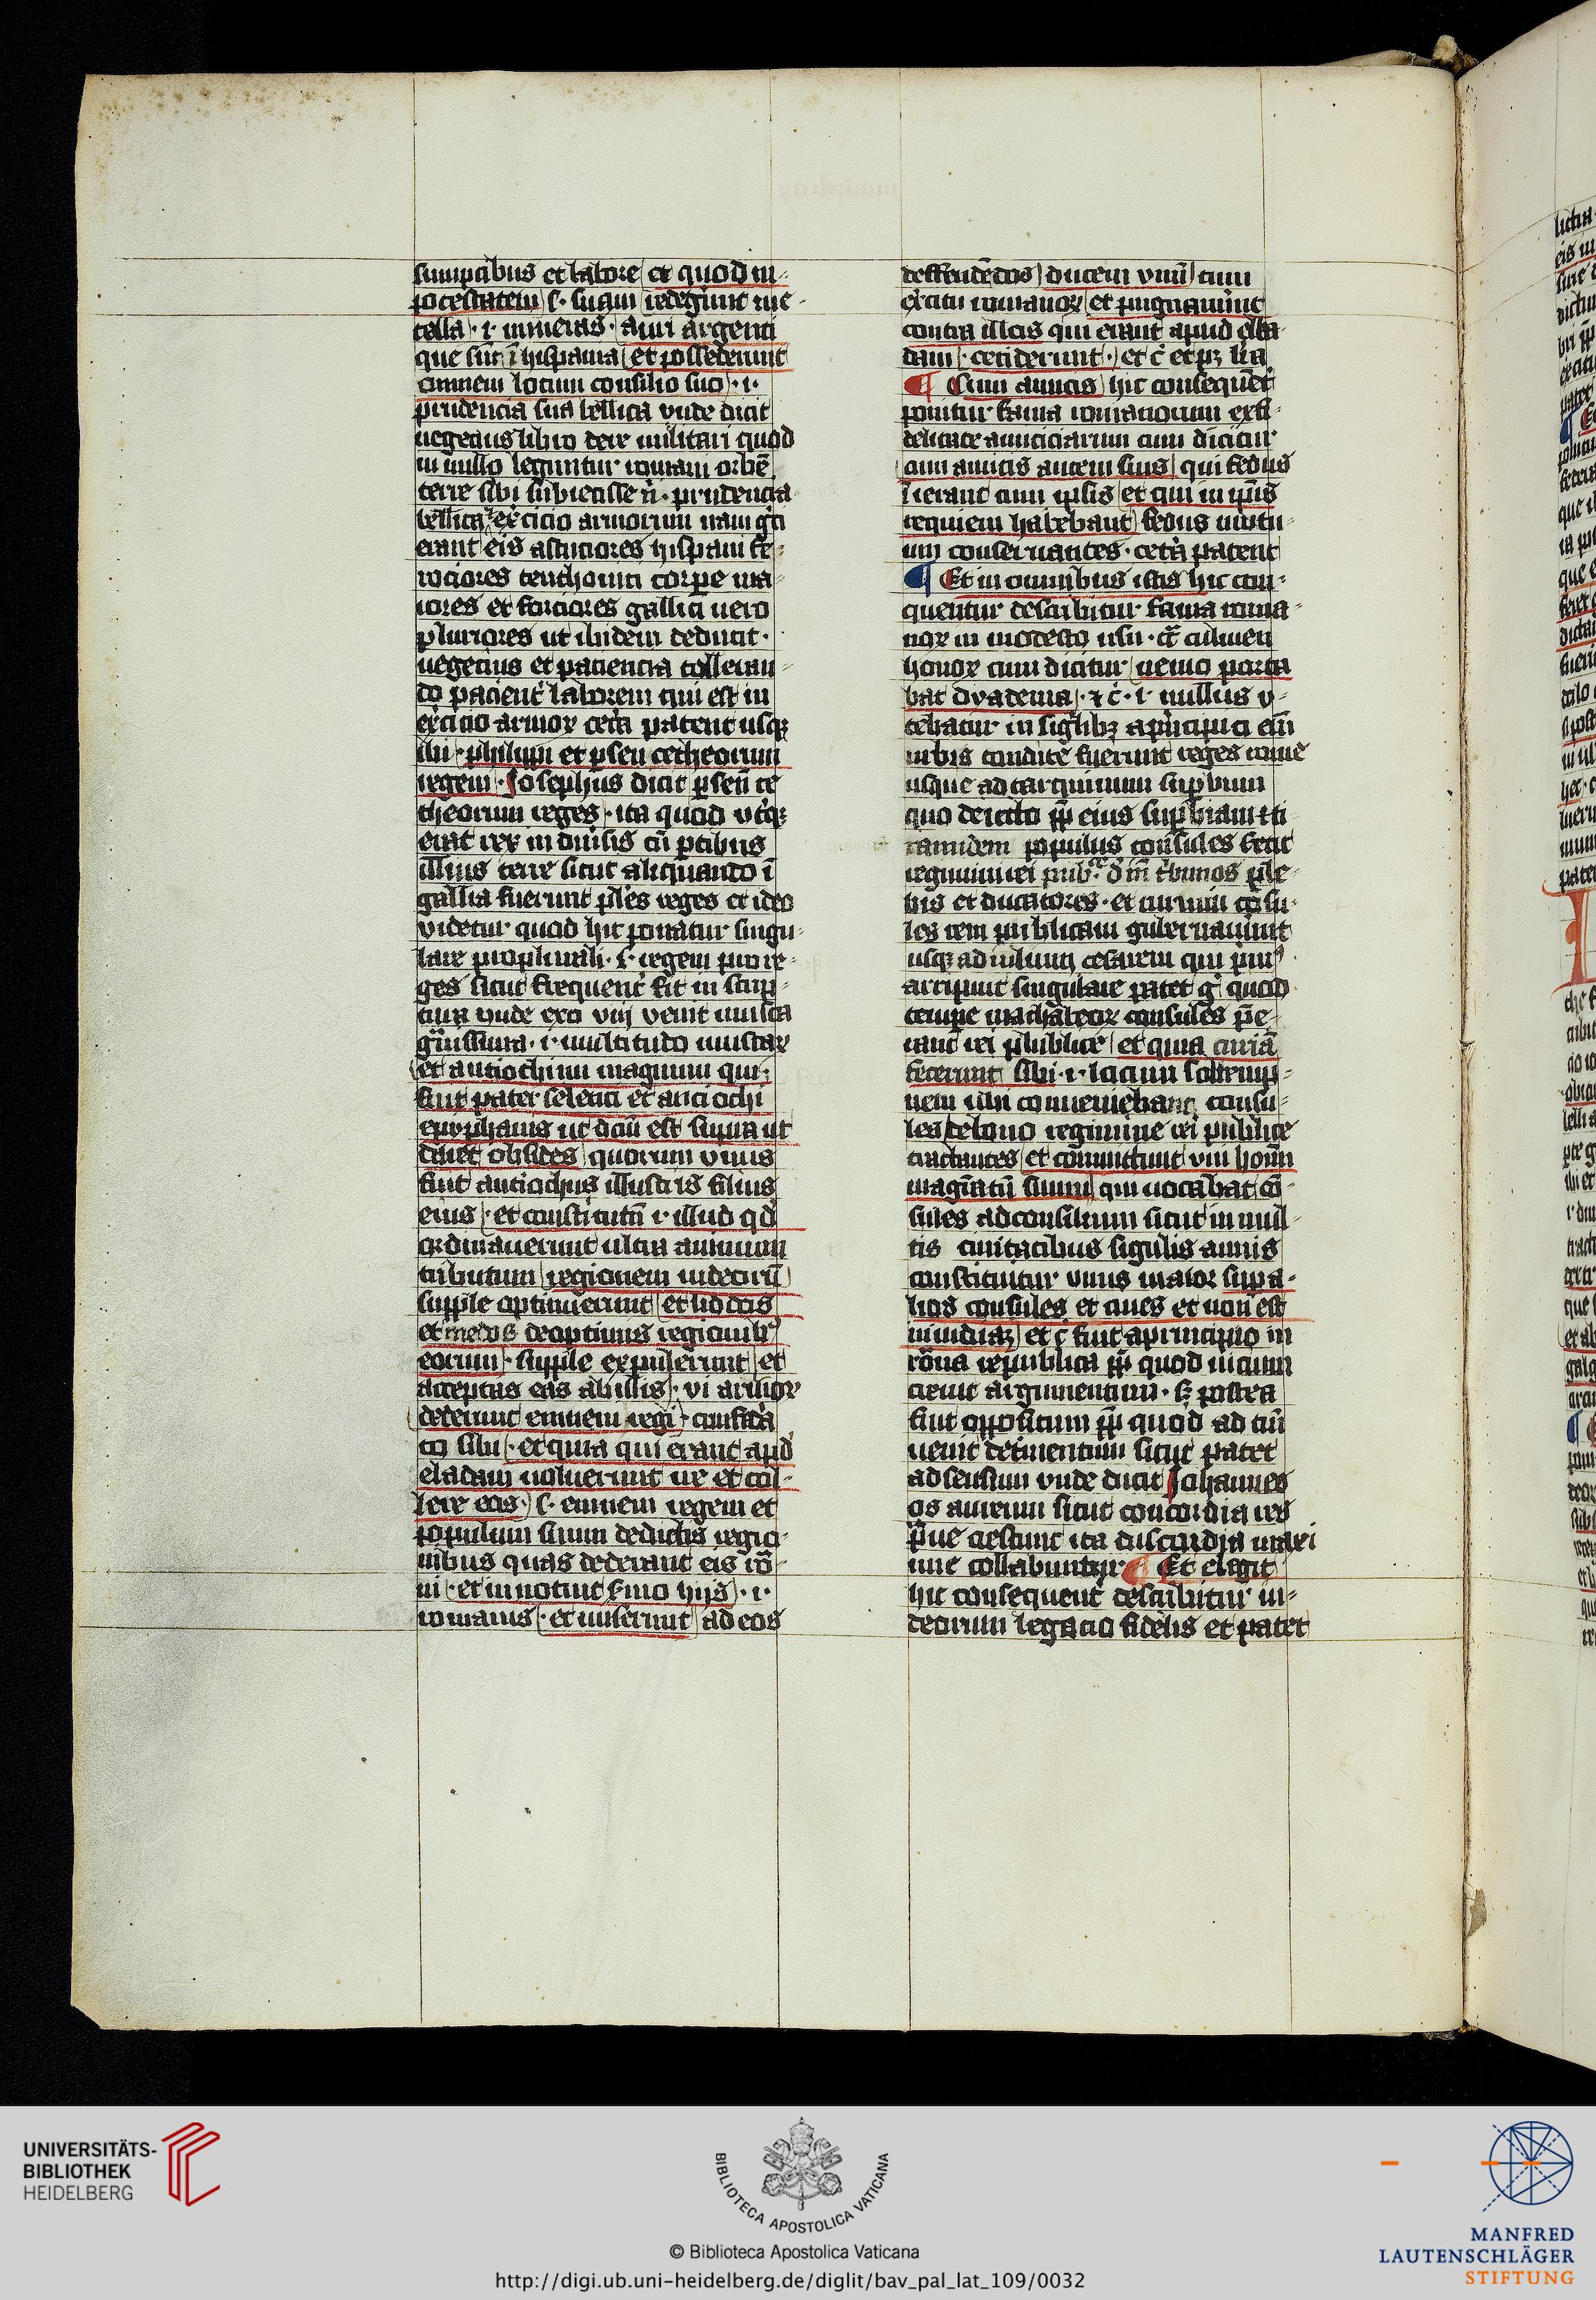 sumptibus et labore et quod in
potestatem s. suam redegerunt me
talla .i. mineras. auri argenti
que sūt ī hispania et possederunt
omnem locum consilio suo .i.
prudencia sua bellica unde dicit
uegecius libro de re militari quod
in nullo leguntur romani orbē
terre sibi subiecisse n̄. prudencia
bellica exercicio armorum nam
erant eis astuciores hispani fe
rociores corpe ma
iores et forciores gallici uero
pluriores ut ibidem deducit.
uegecius et paciencia tolleran
do pacient laborem qui est in
exercicio armoꝝ cetera patent usqꝫ
ibi philippi et persen cetheorum
regem. Josephus dicit persen ce
theorum reges. ita quod
erat rex in diuisis cū ptibus
illius terre sicut aliquando ī
gallia fuerunt ples reges et ideo
videtur quod hic ponatur singu
lare pro plurali. s. regem pro re
ges sicut frequent fit in scrip
tura unde exo viij venit musca
grauissima .i. multitudo muscaꝝ
et antiochum magnum qui
fuit pater seleuci et antiochi
epyphanis ut dcm est supra ut
daret obsides quorum unus
fuit antiochus illustris filius
eius et constitutū .i. illud qd
ordinauerunt ultra annuum
tributum regionem indorū
supple optinuerunt et lidos
et medos de optimis regionib
eorum. supple expulerunt et
acceptas eas ab illis. vi armoꝝ
dederunt eumeni regi. confedera
to sibi. et quia qui erant apd
eladam uoluerunt ire et tol
lere eos. s. eumenem regem et
populum suum de dictis regio
nibus quas dederant eis ro
ni et innotuit sermo hijs .i.
romanis. et miserunt ad eos
deffendēdos ducem unū cum
exercitu romanoꝝ et pugnauerunt
contra illos qui erant apud ela
dam. ceciderunt. et c̄ et pꝫ lra
¶ Cum amicis hic consequent
ponitur fama romanorum ex fi
delitate amiciciarum cum dicitur
cum amicis autem suis qui fedus
ierant cum ipsis et qui in ipsis
requiem habebant fedus mutu
um conseruantes. cetera patent
¶ Et in omnibus istis hic con
quentur describitur fama roma
noꝝ in modesto usu. circa culmen
honoꝝ cum dicitur nemo porta
bat dyadema. et c̄. i. nullus u
tebatur insignibꝫ a principio enī
urbis condite fuerunt reges rome
usque ad tarquinium supbum
quo deiecto pp eius supbiam et ti
rannidem populus consules fecit
regimini rei pub. deinde tribunos ple
bis et dictatores. et iterum consu
les rem publicam gubernauerunt
usqꝫ ad iulium cesarem qui prius
arripuit singulare patet g quod
tempe machabeoꝝ consules pre
erant rei publice et quia curiā
fecerunt sibi .i. locum sollemp
nem ubi conueniebant consu
les de bono regimine rei publice
tractantes et committunt uni homī
magistratū suum qui uocabat cō
sules ad consilium sicut in mul
tis ciuitatibus sigulis annis
constituitur unus maior supra
lios consules et ciues et non est
inuidia et c̄ fuit a principio in
romana republica pp quod
creuit argumentum. sꝫ postea
fuit oppositum pp quod ad cum
uenit detrimentum sicut patet
ad sensum unde dicit Johannes
os aureum sicut concordia res
parue crescunt ita discordia maxi
me collabuntur ¶ Et elegit
hic consequent describitur iu
deorum legacio fidelis et patet
UNIVERSITÄTS-
BIBLIOTHEK
HEIDELBERG
BIBLIOTECA APOSTOLICA VATICANA
© Biblioteca Apostolica Vaticana
http://digi.ub.uni-heidelberg.de/diglit/bav_pal_lat_109/0032
MANFRED
LAUTENSCHLÄGER
STIFTUNG